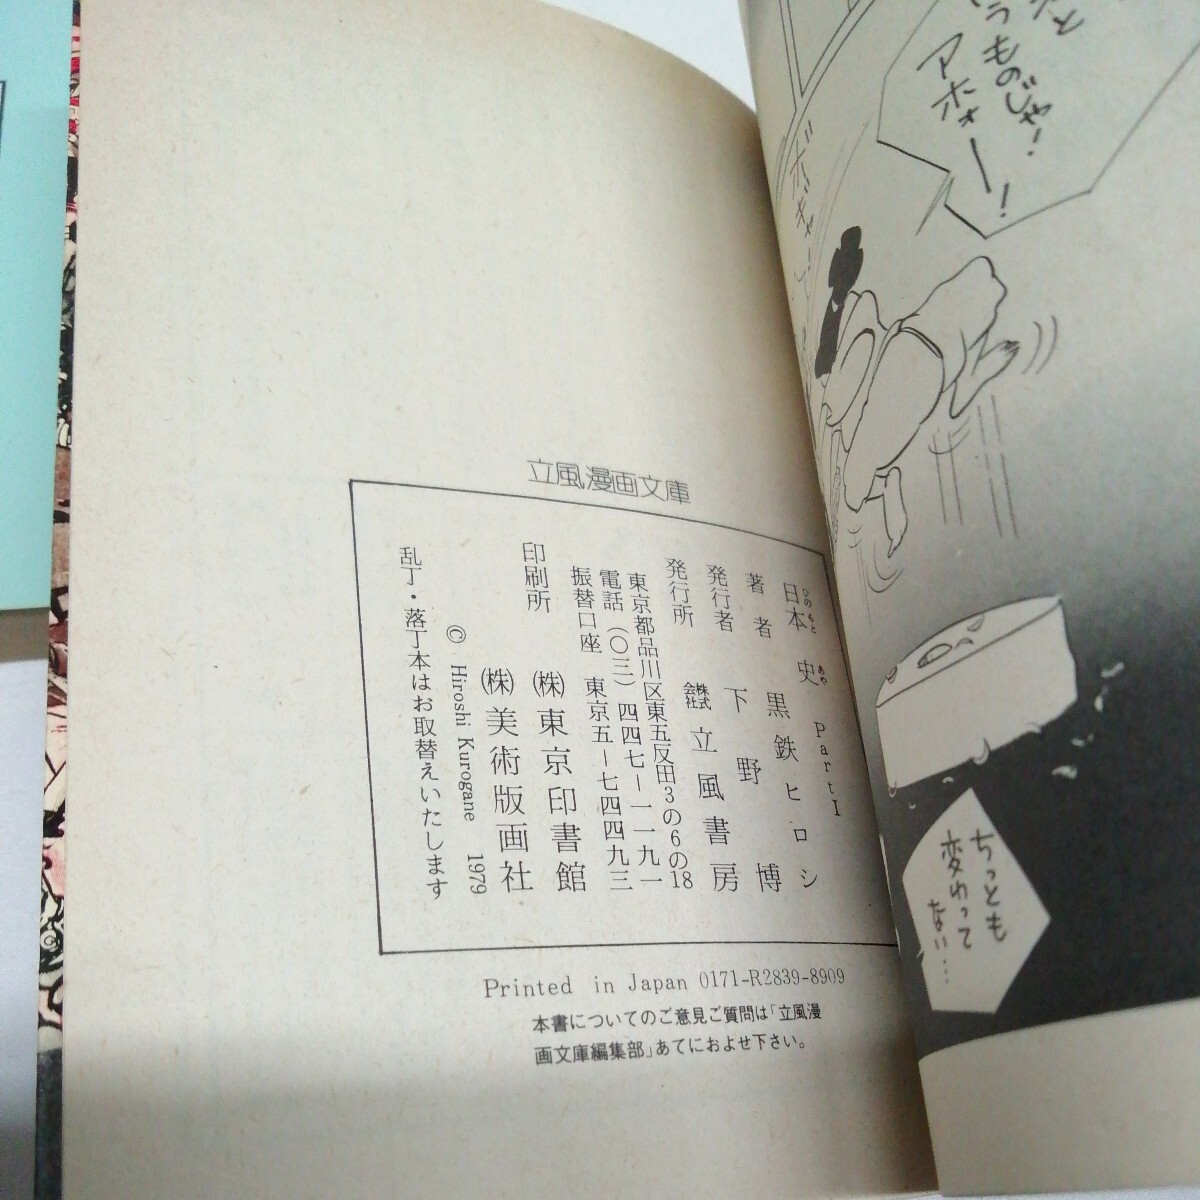 うものじゃ!
アホォー!
ちっとも
変わって
ない…
立風漫画文庫
日本史 Part I
ひのもと あや
著者 黒鉄ヒロシ
発行者 下野博
発行所 株式会社 立風書房
東京都品川区東五反田3の6の18
電話(〇三)四四七-一一九一
振替口座 東京五-七四四九三
印刷所 (株)東京印書館
(株)美術版画社
© Hiroshi Kurogane 1979
乱丁・落丁本はお取替えいたします
Printed in Japan 0171-R2839-8909
本書についてのご意見ご質問は「立風漫
画文庫編集部」あてにおよせ下さい。